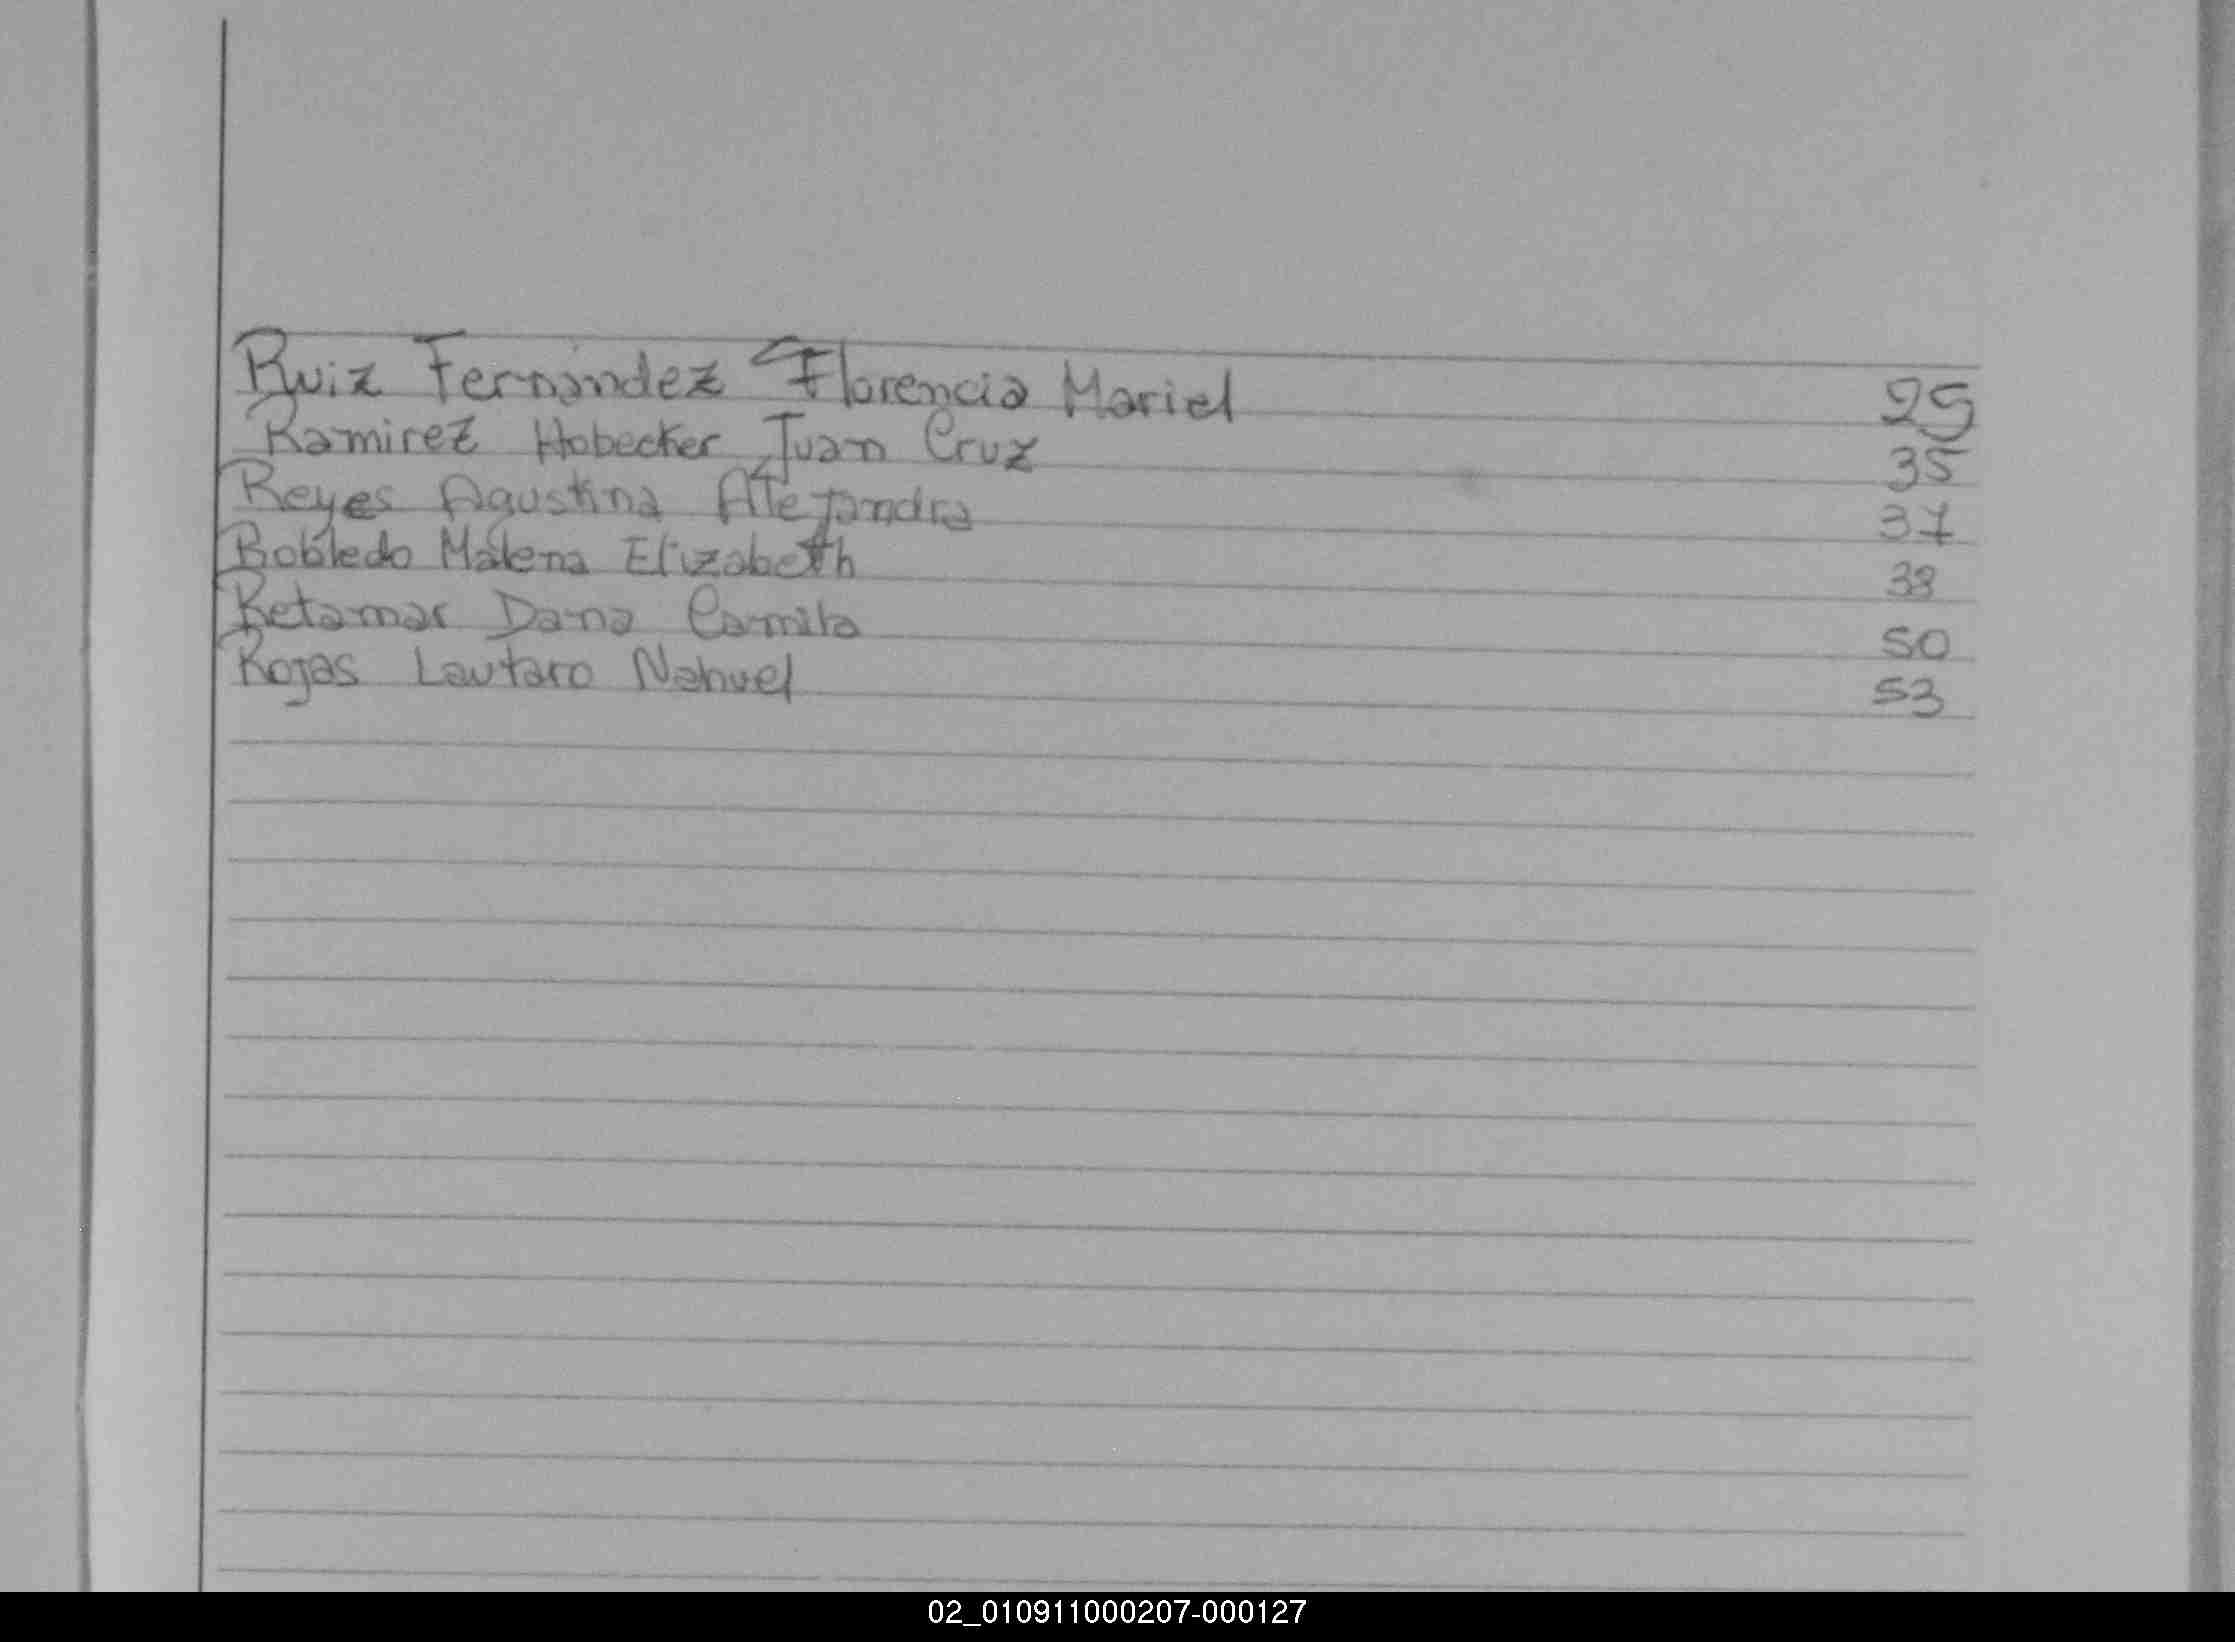 Ruiz Fernandez Florencia Mariel 25
Ramirez Hobecker Juan Cruz 35
Reyes Agustina Alejandra 37
Robledo Malena Elizabeth 38
Retamar Dana Camila 50
Rojas Lautaro Nahuel 53
02_010911000207-000127